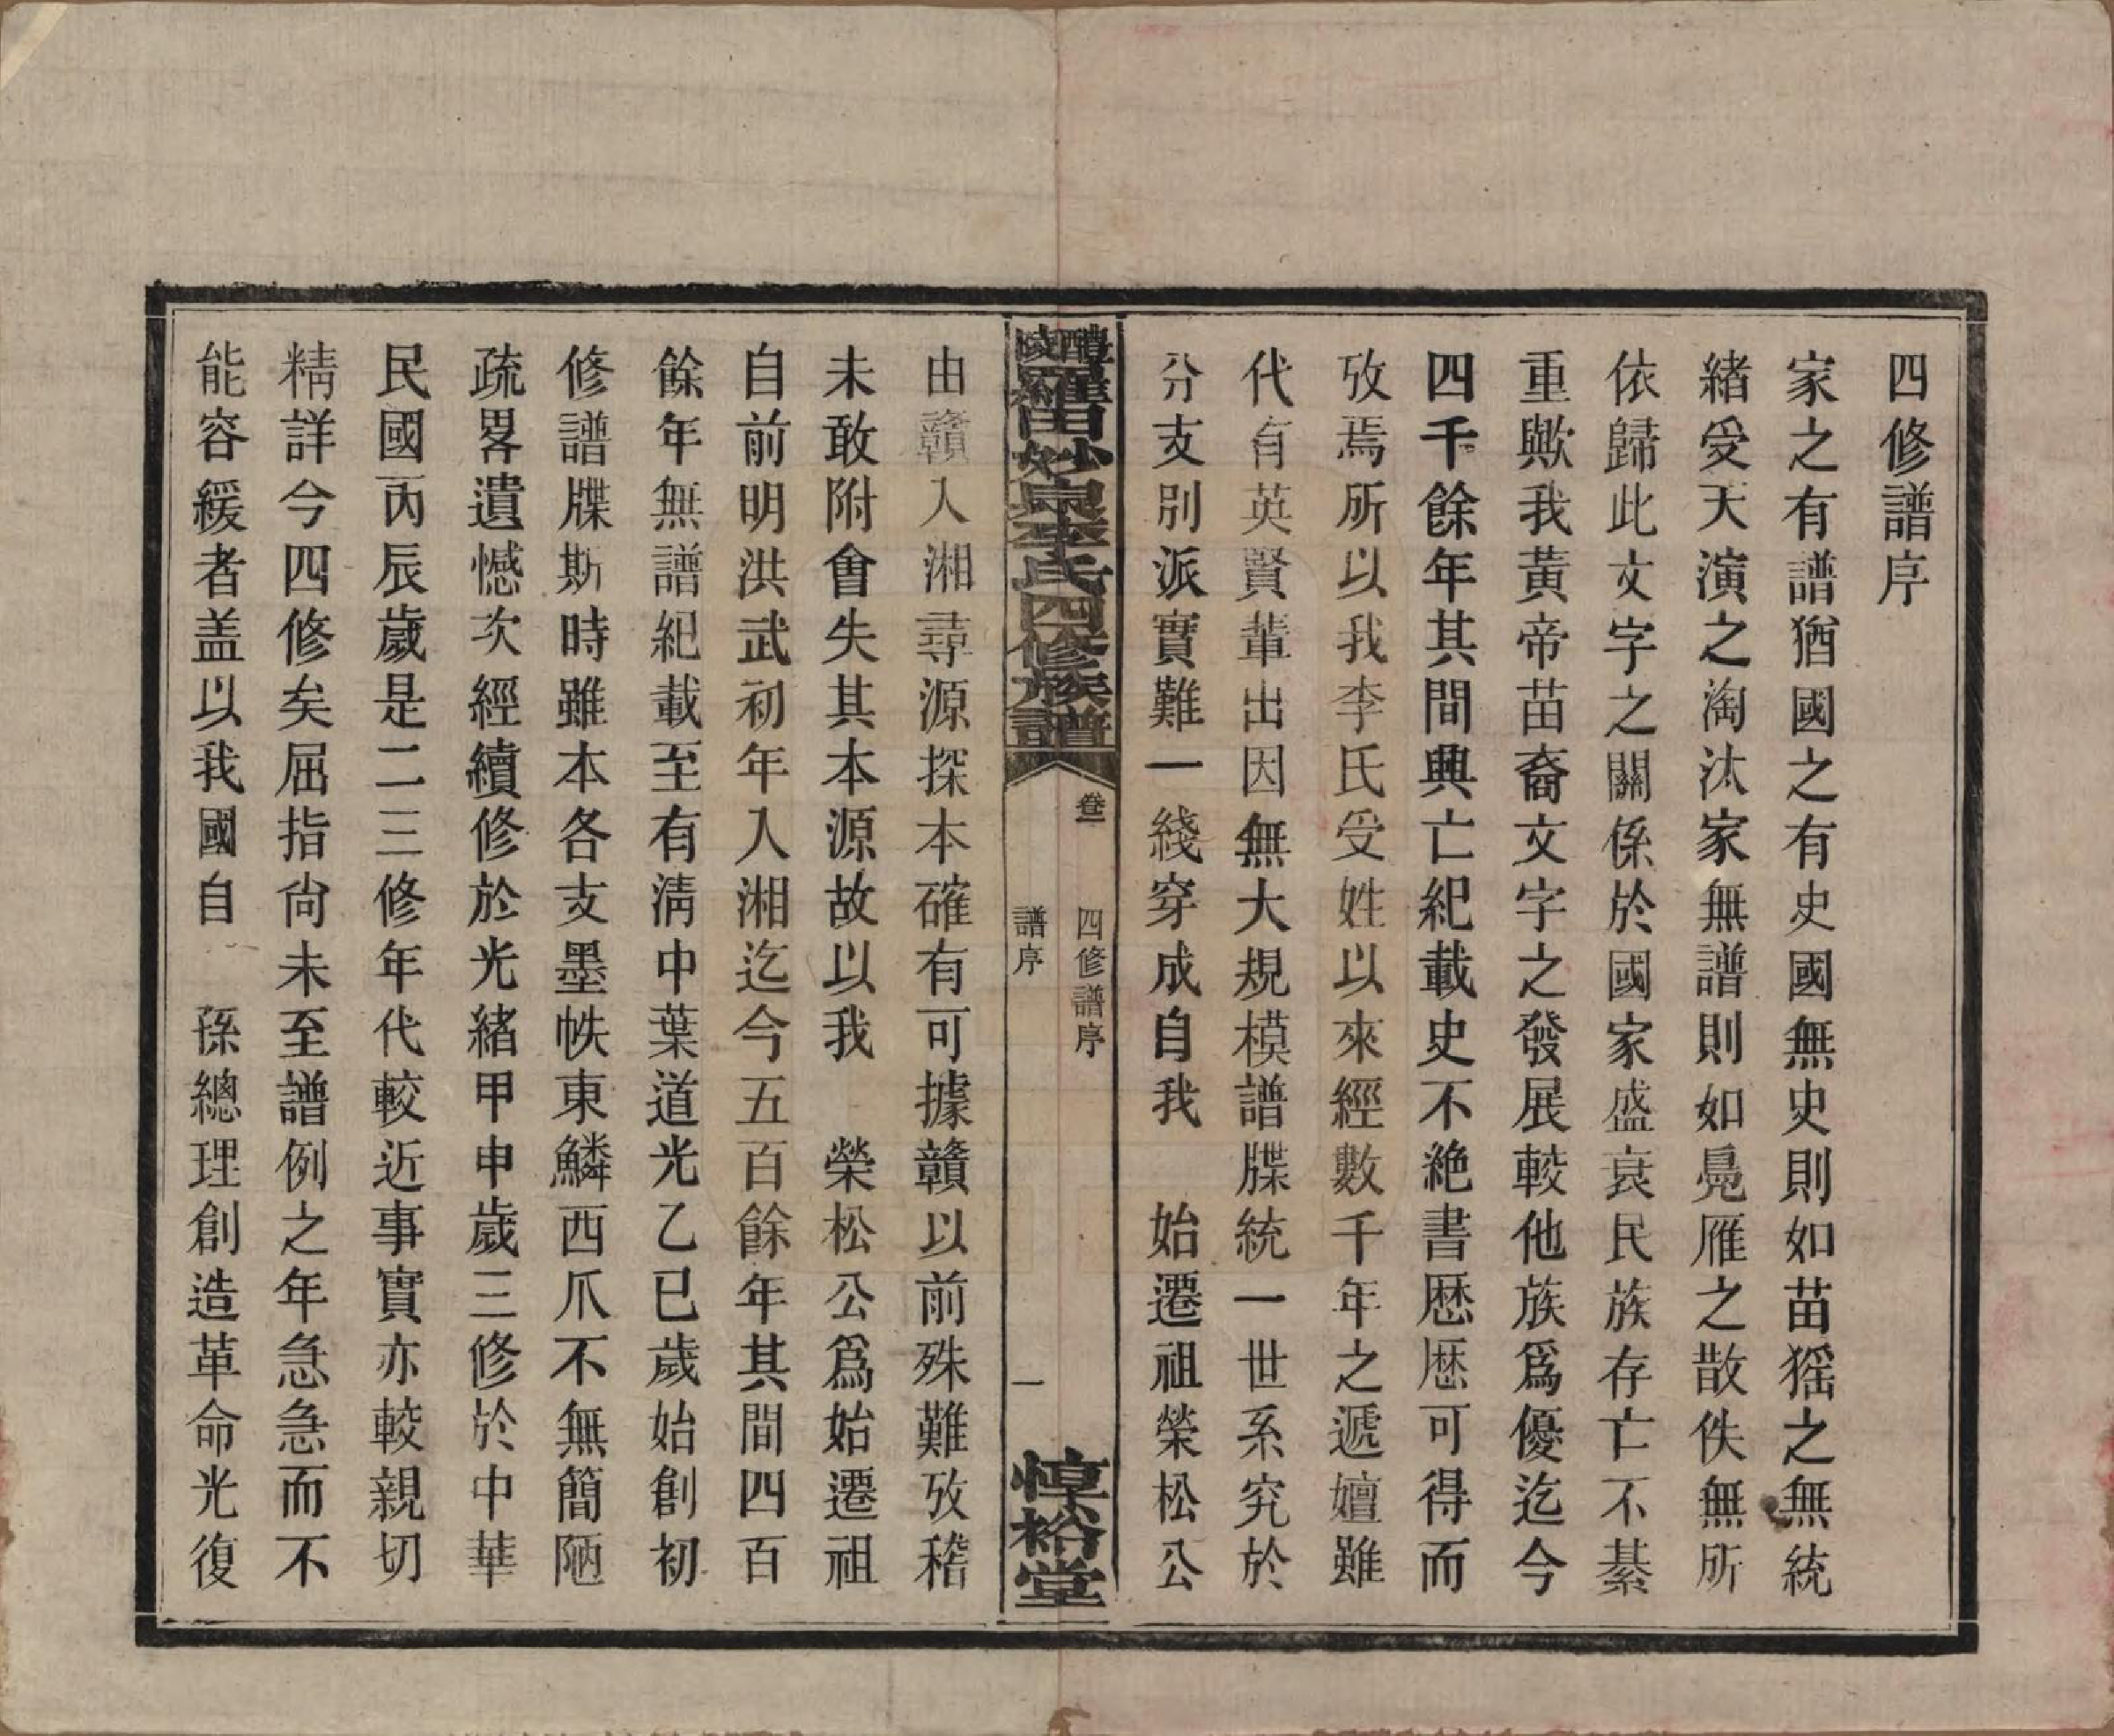 四修譜序
家之有譜猶國之有史國無史則如苗猺之無統
緒受天演之淘汰家無譜則如鳧雁之散佚無所
依歸此文字之關係於國家盛衰民族存亡不綦
重歟我黃帝苗裔文字之發展較他族爲優迄今
四千餘年其間興亡紀載史不絶書厯厯可得而
攷焉所以我李氏受姓以來經數千年之遞嬗雖
代有英賢輩出因無大規模譜牒統一世系究於
分支別派實難一綫穿成自我　始遷祖榮松公
醴陵羅田妙泉李氏四修族譜
卷一　四修譜序
譜序　一
惇裕堂
由贛入湘尋源探本確有可據贛以前殊難攷稽
未敢附會失其本源故以我　榮松公爲始遷祖
自前明洪武初年入湘迄今五百餘年其間四百
餘年無譜紀載至有淸中葉道光乙巳歲始創初
修譜牒斯時雖本各支墨帙東鱗西爪不無簡陋
疏畧遺憾次經續修於光緒甲申歲三修於中華
民國丙辰歲是二三修年代較近事實亦較親切
精詳今四修矣屈指尙未至譜例之年急急而不
能容緩者盖以我國自　孫總理創造革命光復